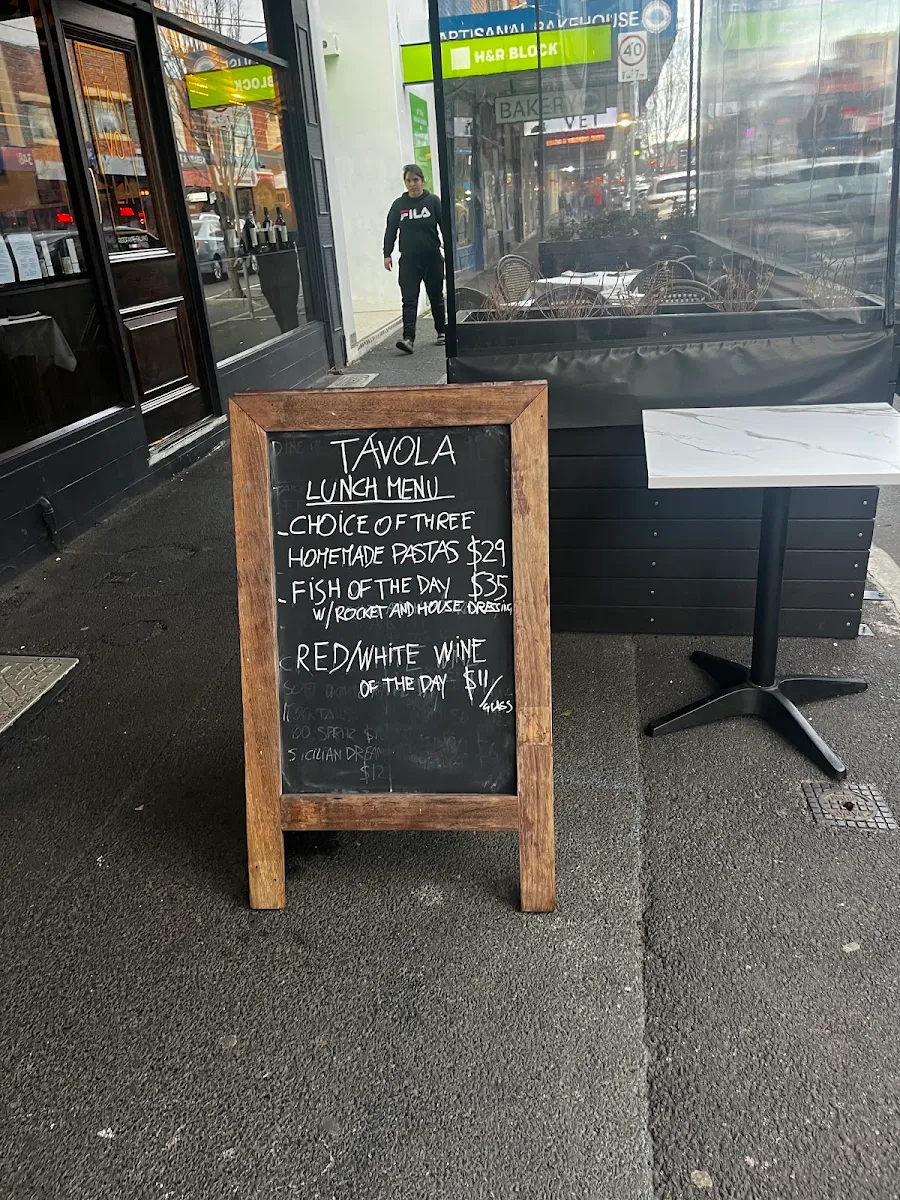 ARTISANAL BAKEHOUSE
H&R BLOCK
40
BAKERY
VET
BLOCK
FILA
TAVOLA
LUNCH MENU
- CHOICE OF THREE
HOMEMADE PASTAS $29
- FISH OF THE DAY $35
W/ROCKET AND HOUSE DRESSING
RED/WHITE WINE
OF THE DAY $11/
GLASS
SICILIAN DREAM
$12